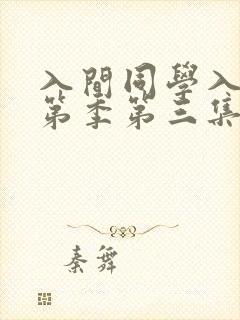 入間同學入
第季第三集
秦舞